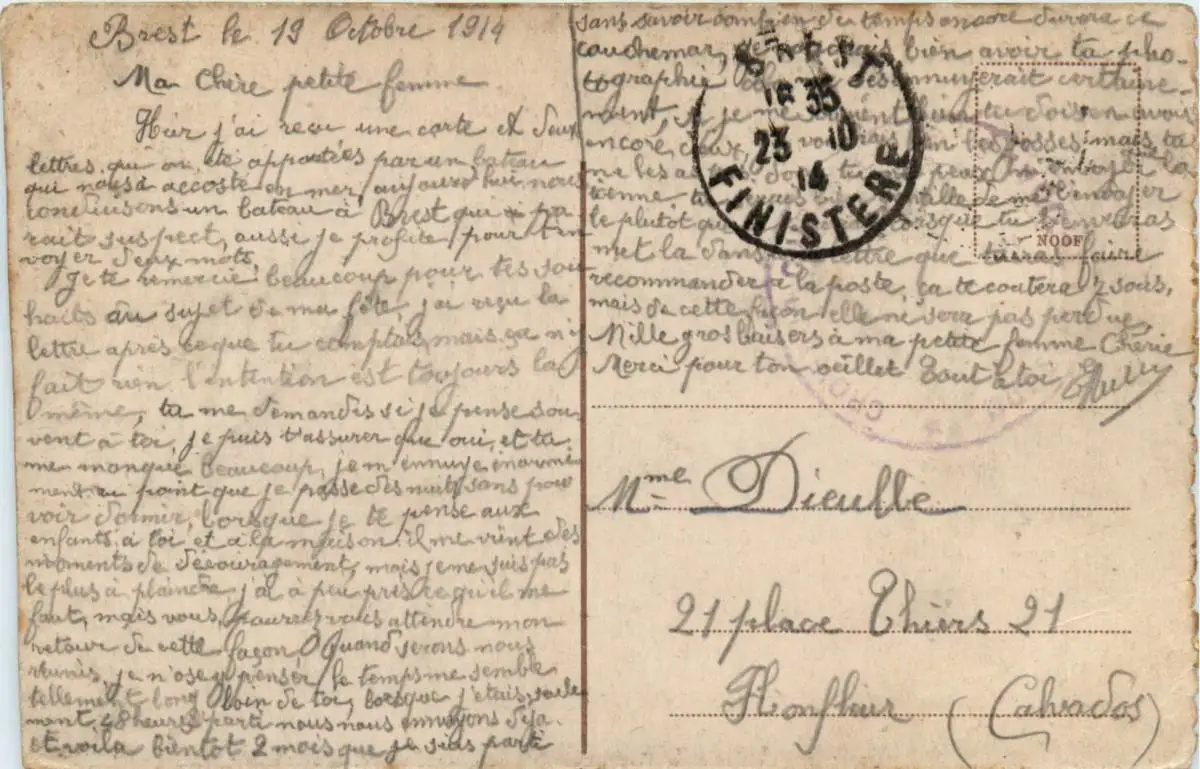 Brest le 19 Octobre 1914
Ma Chère petite femme
Hier j'ai recu une carte et deux
lettres qui on été apportées par un bateau
qui nous a accosté en mer, aujourd'hui nous
conduisons un bateau à Brest qui pa
rait suspect, aussi je profite pour t'en
voyer deux mots.
Je te remercie beaucoup pour tes sou
haits au sujet de ma fête, j'ai reçu la
lettre après ce que tu comptais, mais ça n'y
fait rien l'intention est toujours la
même, tu me demandes si je pense sou
vent à toi, je puis t'assurer que oui, et tu
me manque beaucoup, je m'ennuye énormé
ment au point que je passe des nuits sans pou
voir dormir, lorsque je te pense aux
enfants à toi et à la maison il me vient des
moments de découragement, mais je me suis pas
le plus à plaindre j'ai à peu près ce qu'il me
faut, mais vous, pourrez vous attendre mon
retour de cette façon Quand serons nous
réunis, je n'ose y penser, le temps me semble
tellement long loin de toi, lorsque j'étais seule
ment 48 heures parti nous nous ennuyons déja
et voila bientot 2 mois que je suis parti
sans savoir combien du temps encore durera ce
cauchemar, je voudrais bien avoir ta pho-
tographie désennuyerait certaine-
ment, si je me tu dois en avoir
encore, ceux mais ta
ne les tu peux m'envoyer la
tienne de me l'envoyer
le plutot lorsque tu enverras
met la dans lettre que tu feras faire
recommander à la poste, ça te coutera 2 sous,
mais de cette façon elle ne sera pas perdue
Mille gros baisers à ma petite femme Chérie
Merci pour ton œillet Tout à toi
BREST
18 35
23 10
14
FINISTERE
NOOF
Mme Dieulle
21 place Thiers 21
Honfleur (Calvados)